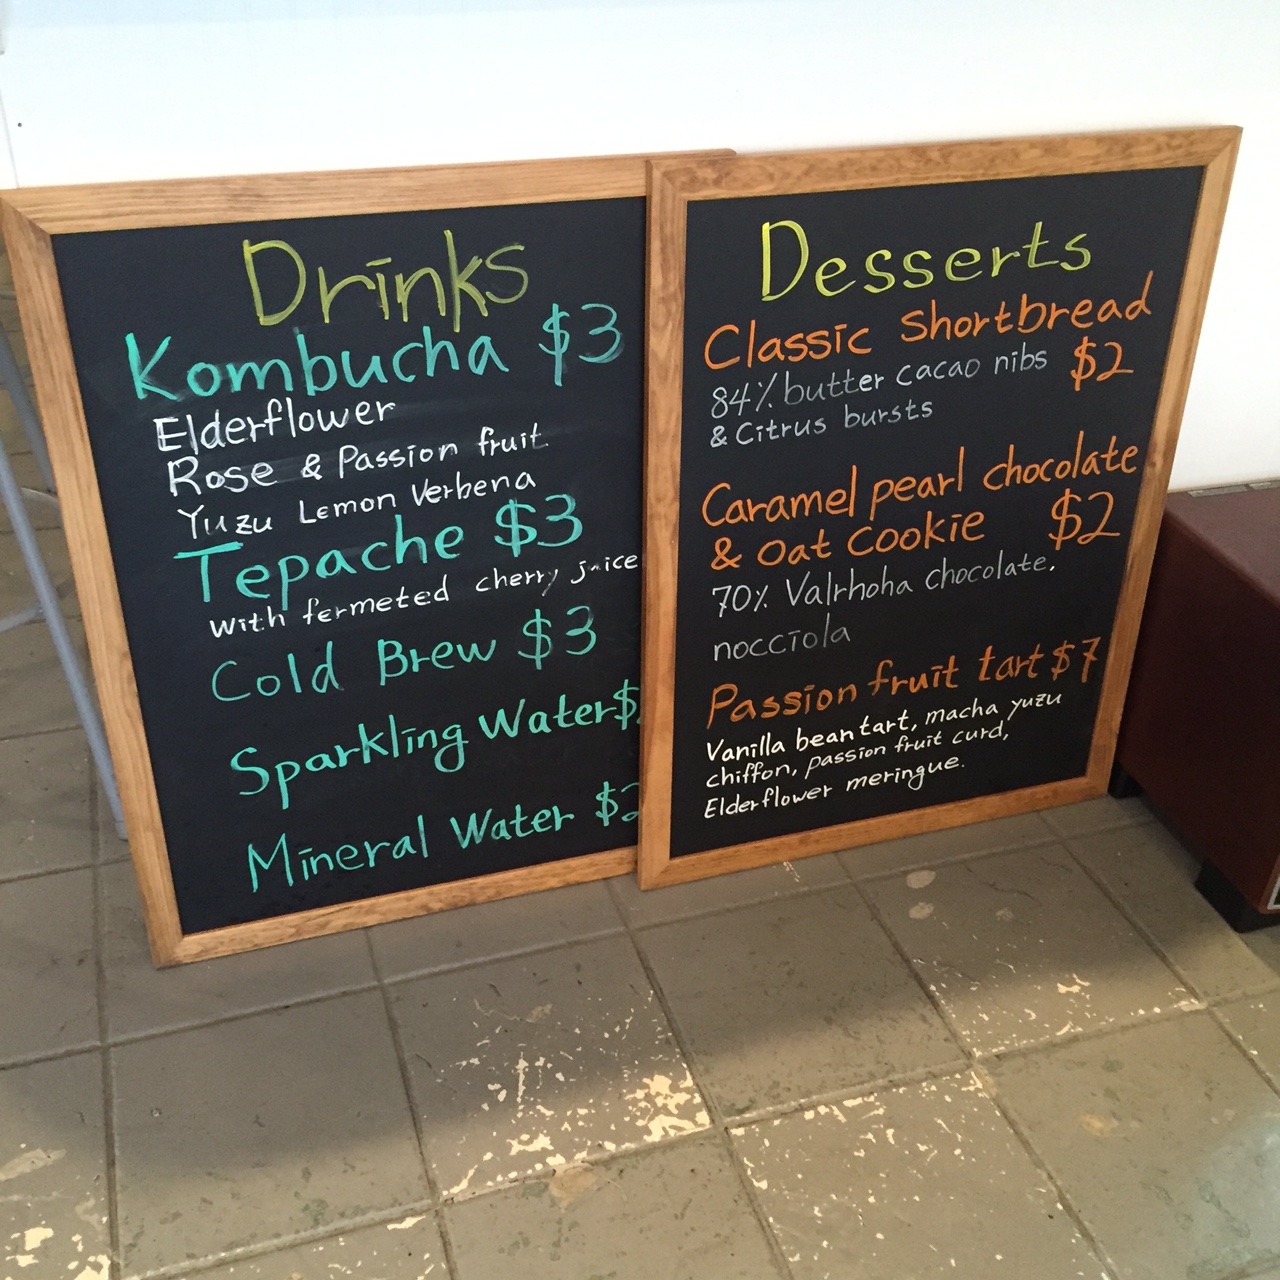 Drinks
Kombucha $3
Elderflower
Rose & Passion fruit
Yuzu Lemon Verbena
Tepache $3
with fermeted cherry juice
Cold Brew $3
Sparkling Water $
Mineral Water $2
Desserts
Classic Shortbread
84% butter cacao nibs $2
& Citrus bursts
Caramel pearl chocolate
& Oat Cookie $2
70% Valrhoha chocolate.
nocciola
Passion fruit tart $7
Vanilla bean tart, macha yuzu
chiffon, passion fruit curd,
Elderflower meringue.